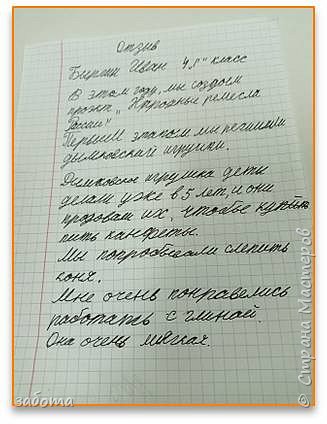 Отзив
Биргин Иван 4 „Г" класс
В этом году, мы создаём
проэкт „Народные ремесла
России"
Первим этапом мы
дымковский игрушки.
Дымковское игрушка деты
делали уже в 5 лет, и они
продовали их, чтобы
пить канфеты.
Мы попробывали слепить
коня.
Мне очень понравелись
работать с глиной.
Она очень мягкая.
забота
© Страна Мастеров